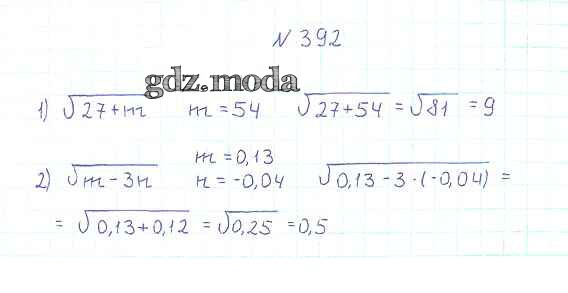 N 392
gdz.moda
1) √27+m m = 54 √27+54 = √81 = 9
m = 0,13
2) √m-3n n = -0,04 √0,13-3·(-0,04) =
= √0,13+0,12 = √0,25 = 0,5